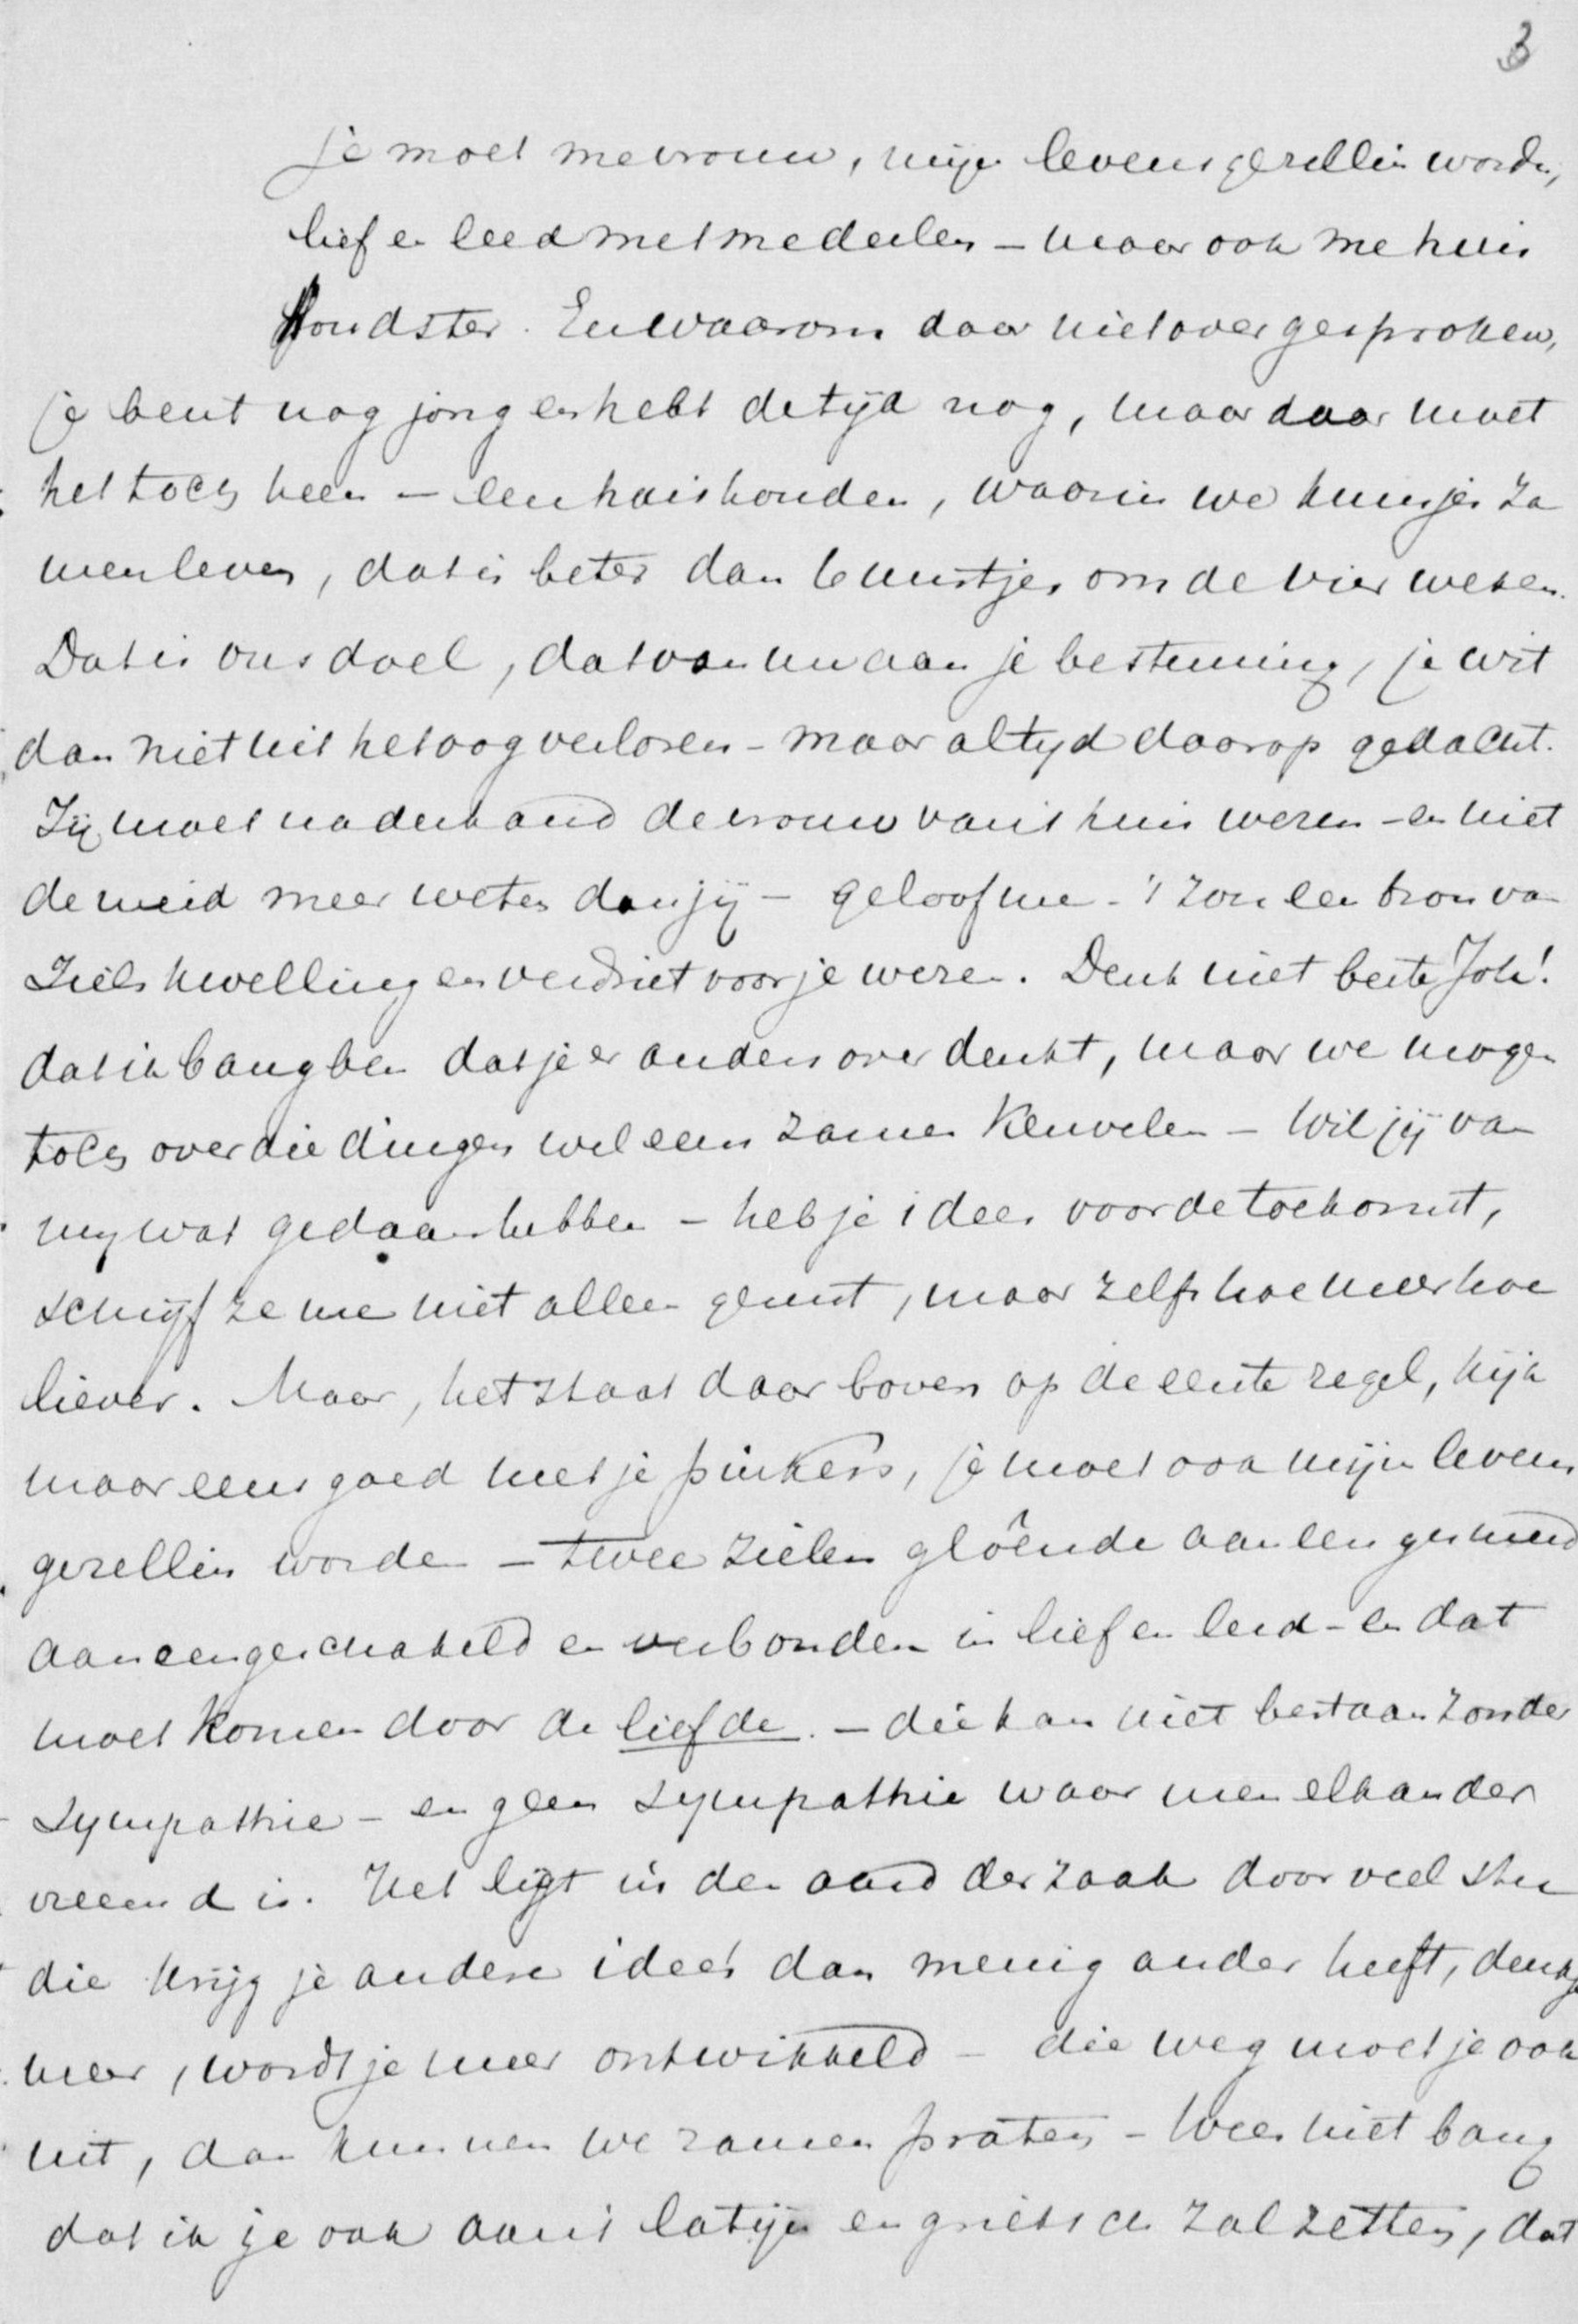 3
je moet mevrouw, mijn levensgezellin worden,
lief en leed met me deelen – maar ook me huis
houdster. En waarom daar niet over gesproken,
je bent nog jong en hebt de tijd nog, maar daar moet
het toch heen – een huishouden, waarin we kunsjes za
menleven, dat is beter dan kunstjes om de vier weken.
Dat is ons doel, dat van nu aan je bestemming, je wit
dan niet uit het oog verloren – maar altyd daarop gedacht.
Jij moet naderhand de vrouw van 't huis wezen – en niet
de meid meer weten dan jij – geloof me – 't zou een bron van
zielskwelling en verdriet voor je wezen. Denk niet beste Joh!
dat ik bang ben dat je er anders over denkt, maar we mogen
toch over die dingen wel eens zamen keuvelen – Wil jij van
my wat gedaan hebben – heb je idees voor de toekomst,
schrijf ze me niet alleen gerust, maar zelfs hoe meer hoe
liever. Maar, het staat daar boven op de eerste regel, kijk
maar eens goed met je pinkers, je moet ook mijn levens
gezellin worden – twee zielen glôeiende aaneen gesmeed
aaneengeschakeld en verbonden in lief en leed – en dat
moet komen door de liefde. – die kan niet bestaan zonder
sympathie – en geen sympathie waar men elkander
vreemd is. Het ligt in den aard der zaak door veel stu
die krijg je andere idees dan menig ander heeft, denk je
meer, wordt je meer ontwikkeld – die weg moet je ook
uit, dan kunnen we zamen praten – Wees niet bang
dat ik je ook aan 't latijn en grieksch zal zetten, dat